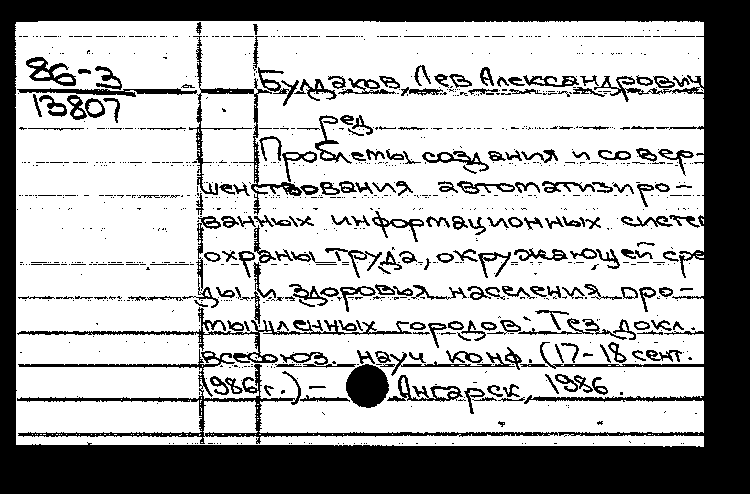 86-3
13807
Булдаков, Лев Александрович
ред
Проблемы создания и совер-
шенствования автоматизиро-
ванных информационных систем
охраны труда, окружающей сре
ды и здоровья населения про-
мышленных городов: Тез. докл.
всесоюз. науч. конф. (17-18 сент.
1986 г.).- Ангарск, 1986.